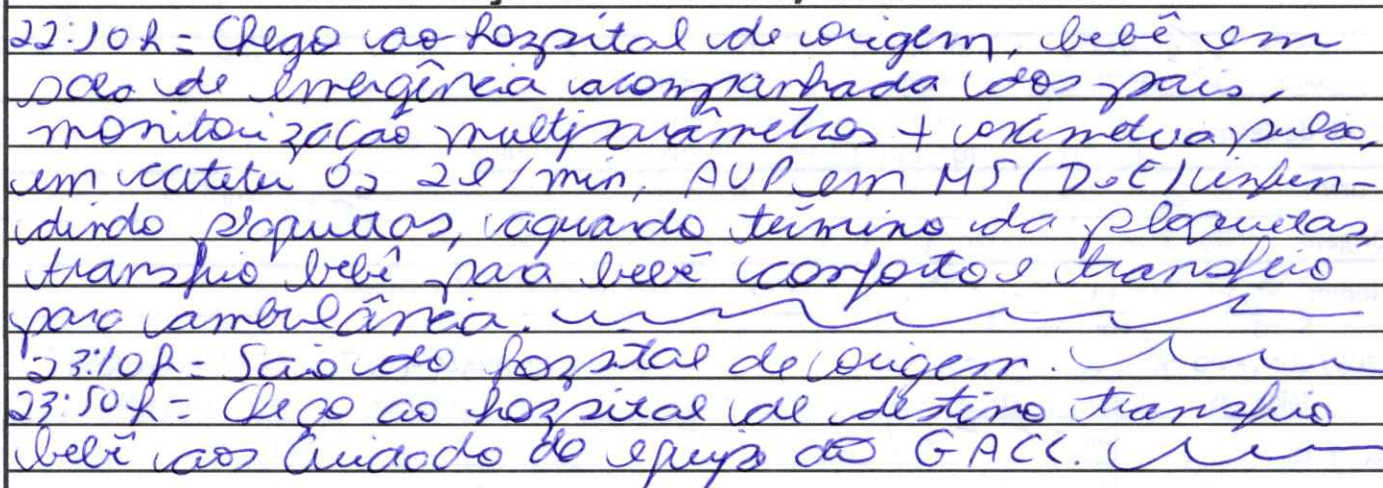 22:10h = Chego ao hospital de origem, bebê em
sala de emergência acompanhada dos pais,
monitorização multiparâmetros + oximetria pulso,
em cateter O2 2l/min, AVP em MS (D e E) infun-
dindo plaquetas, aguardo término da plaquetas,
transfiro bebê para bebê conforto e transfiro
para ambulância.
23:10h = Saio do hospital de origem.
23:50h = Chego ao hospital de destino transfiro
bebê aos cuidado da equipe do GACC.